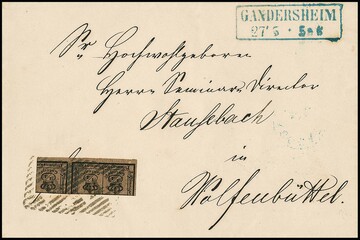 GANDERSHEIM
27/6 · 5-6
Sr Hochwohlgeboren
Herrn Seminar-Director
Stausebach
in
Wolfenbüttel.